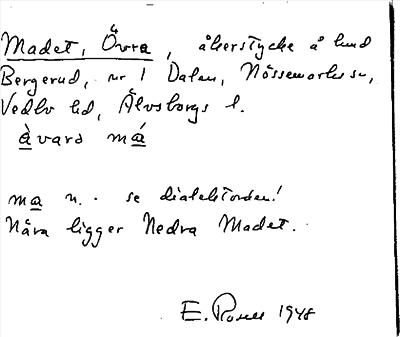 Madet, Övra, åkerstycke å hmd
Bergerud, nr 1 Dalen, Nössemarks sn,
Vedbo hd, Älvsborgs l.
àvard má
ma n. - se dialektorden!
Nära ligger Nedra Madet.
E. Rosell 1948